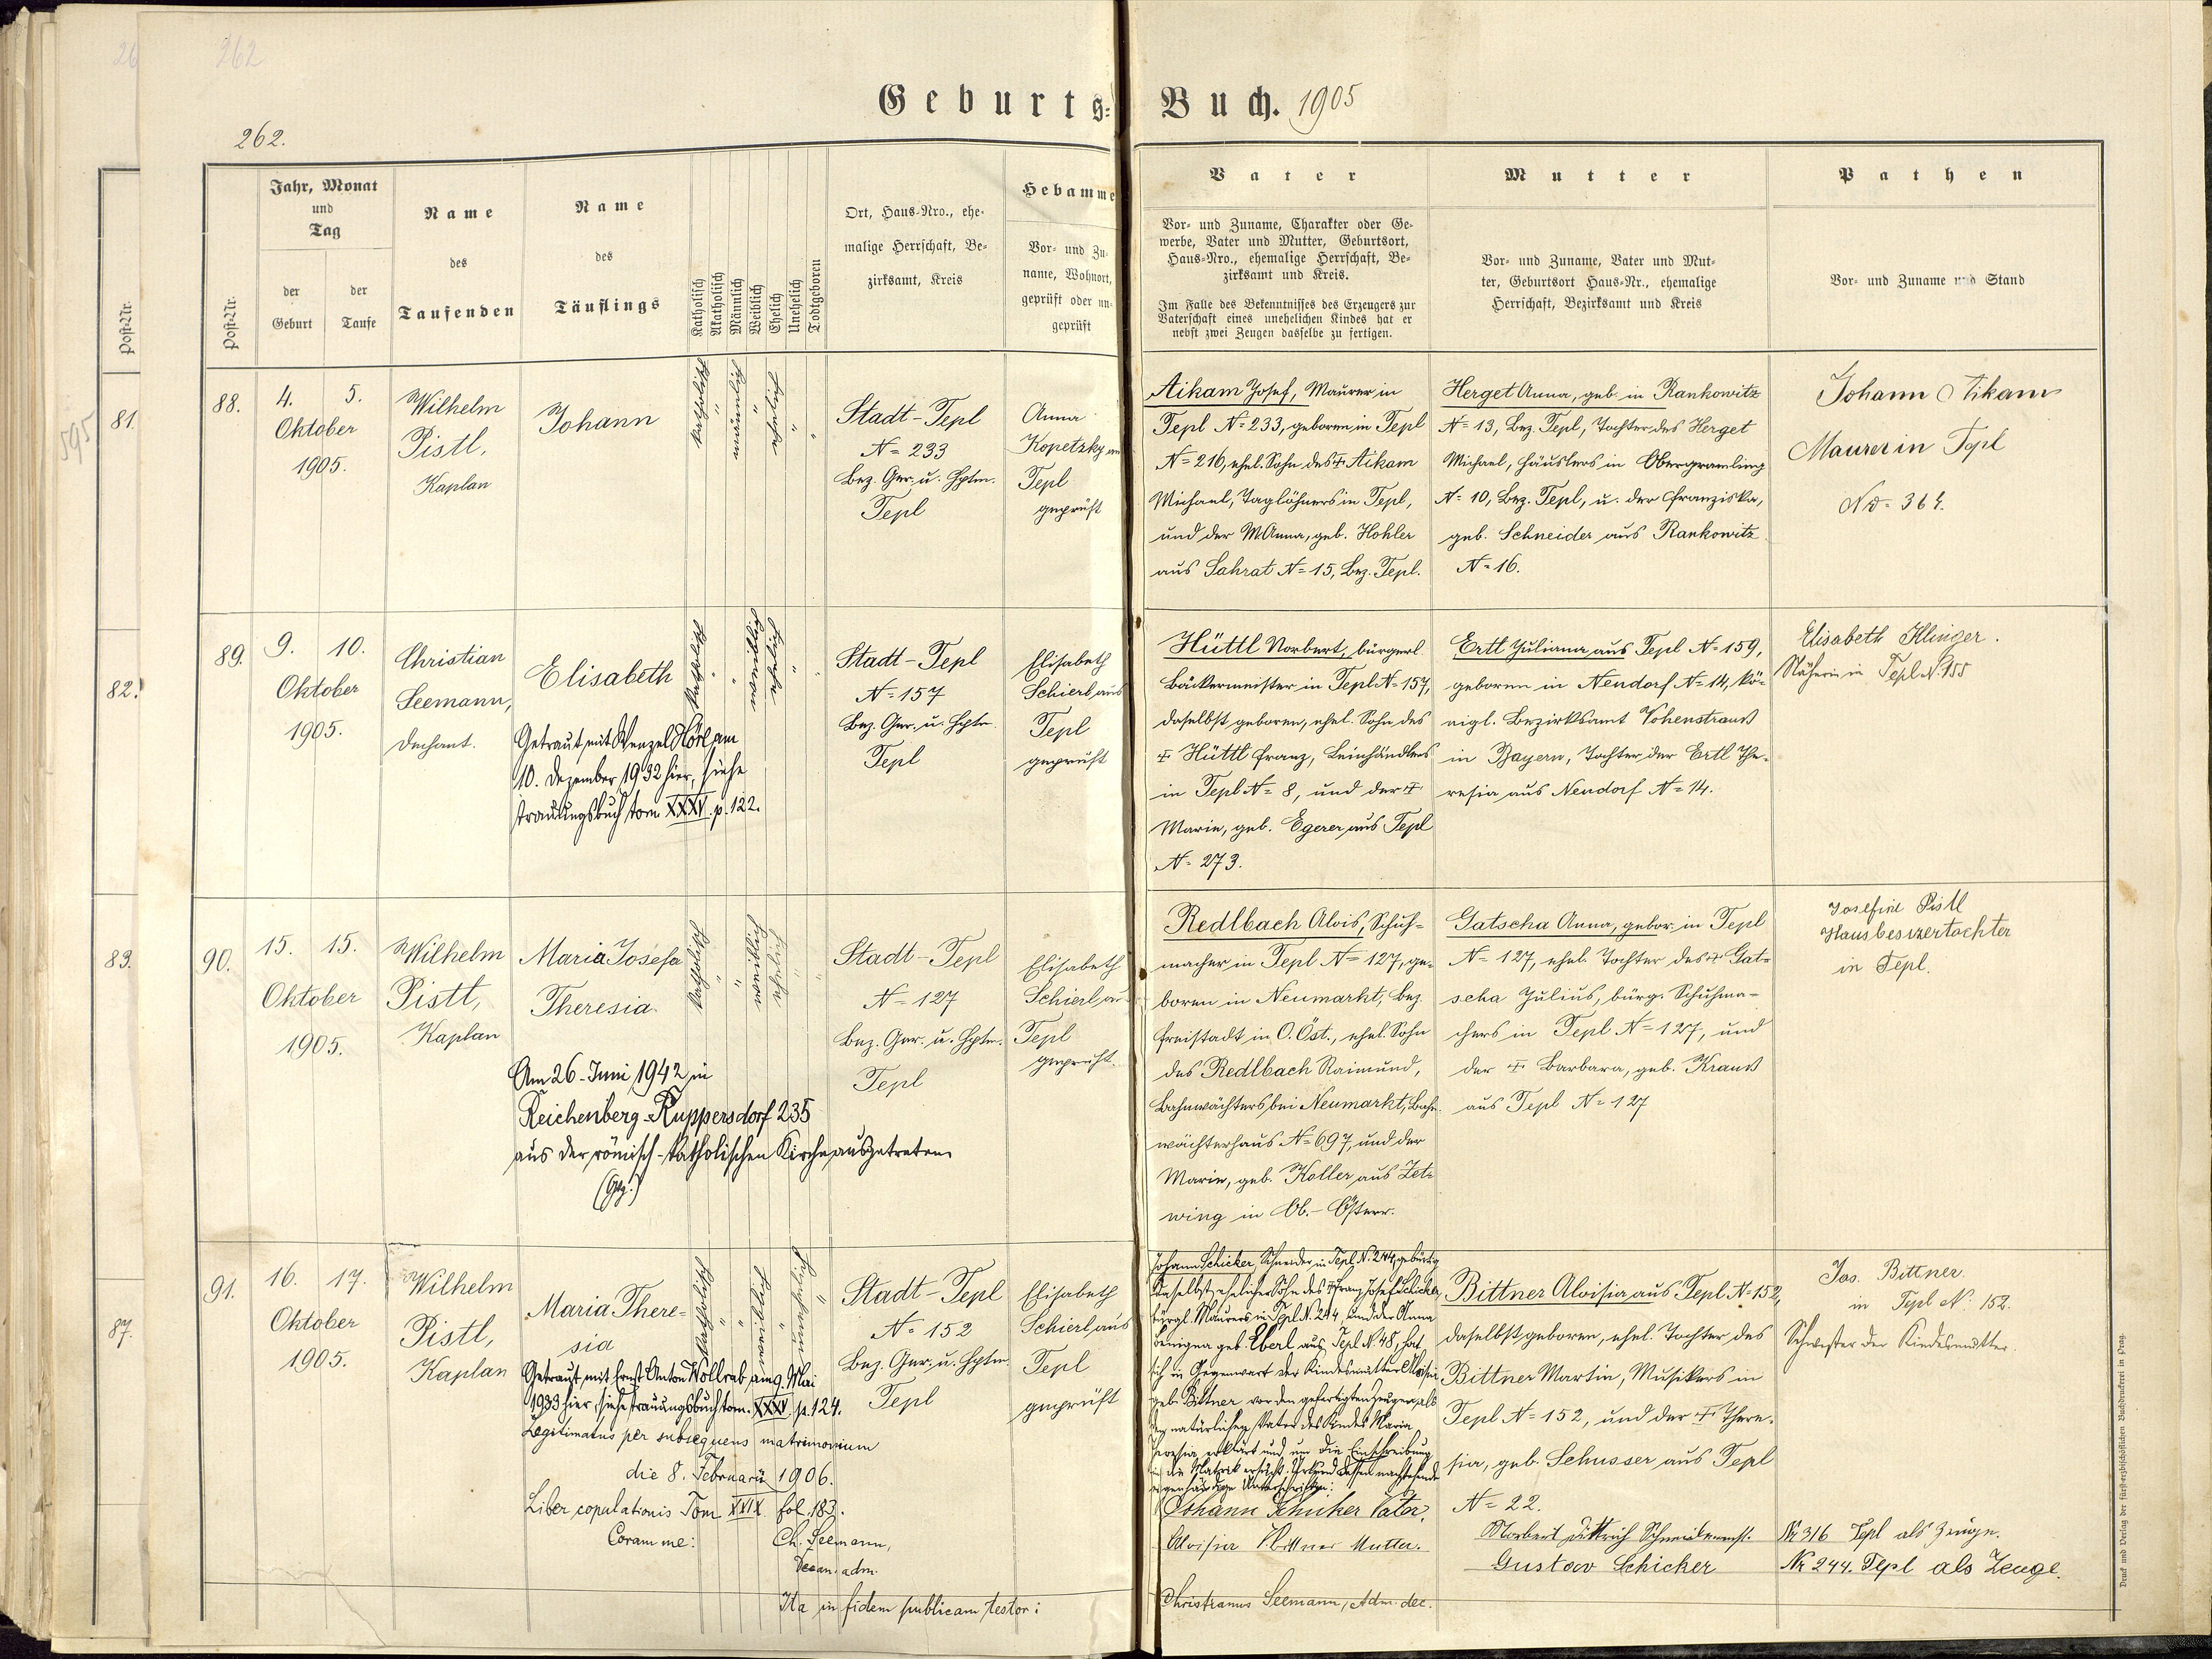 262
262.
Geburts-Buch. 1905
Post-Nr.
Jahr, Monat
und
Tag
der
Geburt
der
Taufe
Name
des
Taufenden
Name
des
Täuflings
Katholisch
Akatholisch
Männlich
Weiblich
Ehelich
Unehelich
Todtgeboren
Ort, Haus-Nro., ehe-
malige Herrschaft, Be-
zirksamt, Kreis
Hebamme
Vor- und Zu-
name, Wohnort,
geprüft oder un-
geprüft
Vater
Vor- und Zuname, Charakter oder Ge-
werbe, Vater und Mutter, Geburtsort,
Haus-Nro., ehemalige Herrschaft, Be-
zirksamt und Kreis.
Im Falle des Bekenntnisses des Erzeugers zur
Vaterschaft eines unehelichen Kindes hat er
nebst zwei Zeugen dasselbe zu fertigen.
Mutter
Vor- und Zuname, Vater und Mut-
ter, Geburtsort Haus-Nr., ehemalige
Herrschaft, Bezirksamt und Kreis
Pathen
Vor- und Zuname und Stand
Post-Nr.
81.
82.
83.
87.
595
88.
4. 5.
Oktober
1905.
Wilhelm
Pistl,
Kaplan
Johann
katholisch
"
männlich
"
ehelich
"
"
Stadt-Tepl
N= 233
Bez. Ger. u. Hptm.
Tepl
Anna
Kopetzky
Tepl
geprüft
Aikam Josef, Maurer in
Tepl N= 233, geboren in Tepl
N= 216, ehel. Sohn des + Aikam
Michael, Taglöhners in Tepl,
und der M. Anna, geb. Hohler
aus Sahrat N= 15, Bez. Tepl.
Herget Anna, geb. in Rankowitz
N= 13, Bez. Tepl, Tochter des Herget
Michael, Häuslers in Obergramling
N= 10, Bez. Tepl, u. der Franziska,
geb. Schneider aus Rankowitz
N= 16.
Johann Aikam
Maurer in Tepl
No= 364.
89.
9. 10.
Oktober
1905.
Christian
Seemann,
Dechant.
Elisabeth
Getraut mit Wenzel Hörl am
10. Dezember 1932 hier, siehe
Trauungsbuch tom XXXV. p. 122.
katholisch
"
"
weiblich
ehelich
"
"
Stadt-Tepl
N= 157
Bez. Ger. u. Hptm.
Tepl
Elisabeth
Schierl aus
Tepl
geprüft
Hüttl Norbert, bürgerl
Bäckermeister in Tepl N= 157,
daselbst geboren, ehel. Sohn des
+ Hüttl Franz, Leinhändlers
in Tepl N= 8, und der +
Marie, geb. Egerer aus Tepl
N= 273.
Ertl Juliana aus Tepl N= 159,
geboren in Neudorf N= 14, kö-
nigl. Bezirksamt Vohenstrauß
in Bayern, Tochter der Ertl The-
resia aus Neudorf N= 14.
Elisabeth Klinger.
Näherin in Tepl N. 155
90.
15. 15.
Oktober
1905.
Wilhelm
Pistl,
Kaplan
Maria Josefa
Theresia
Am 26. Juni 1942 in
Reichenberg-Ruppersdorf 235
aus der römisch-katholischen Kirche ausgetreten
katholisch
"
"
weiblich
ehelich
"
"
Stadt-Tepl
N= 127
Bez. Ger. u. Hptm.
Tepl
Elisabeth
Schierl aus
Tepl
geprüft.
Redlbach Alois, Schuh-
macher in Tepl N= 127, ge-
boren in Neumarkt, Bez.
Freistadt in O. Öst., ehel. Sohn
des Redlbach Raimund,
Bahnwächters bei Neumarkt, Bahn-
wächterhaus N= 697, und der
Marie, geb. Koller aus Zet-
wing in Ob.-Österr.
Gatscha Anna, gebor. in Tepl
N= 127, ehel. Tochter des + Gat-
scha Julius, bürg. Schuhma-
chers in Tepl N= 127, und
der + Barbara, geb. Krauß
aus Tepl N= 127
Josefine Pistl
Hausbesizertochter
in Tepl.
91.
16. 17.
Oktober
1905.
Wilhelm
Pistl,
Kaplan
Maria There-
sia
Getraut mit Ernst Anton Wollrab am 9. Mai
1933 hier, siehe Trauungsbuch tom. XXXV p. 124.
Legitimatus per subsequens matrimonium
die 8. Februarii 1906.
Liber copulationis Tom XXIX fol. 183.
Coram me: Ch. Seemann,
Decan. adm.
katholisch
"
"
weiblich
"
unehelich
"
Stadt-Tepl
N= 152
Bez. Ger. u. Hptm.
Tepl
Elisabeth
Schierl aus
Tepl
geprüft
Johann Schicker, Schneider in Tepl N. 244, gebürtig
daselbst, ehelicher Sohn des + Franz Josef Schicker,
bürgl. Maurers in Tepl N. 244, und der Anna
Benigna geb. Eberl aus Tepl N. 48, hat
sich in Gegenwart der Kindesmutter Aloisia
geb. Bittner vor den gefertigten Zeugen als
den natürlichen Vater des Kindes Maria
Theresia erklärt und um die Einschreibung
in die Matrik ersucht. Urkund dessen nachstehende
eigenhändige Unterschriften:
Johann Schicker Vater.
Aloisia Bittner Mutter.
Bittner Aloisia aus Tepl N= 152,
daselbst geboren, ehel. Tochter des
Bittner Martin, Musikers in
Tepl N= 152, und der + There-
sia, geb. Schusser aus Tepl
N= 22.
Norbert Dittrich Schneidermst.
Gustav Schicker
Jos. Bittner.
in Tepl N. 152.
Schwester der Kindesmutter.
Nr 316 Tepl als Zeuge.
Nr 244. Tepl als Zeuge.
Ita in fidem publicam testor:
Christianus Seemann, Adm. dec.
Druck und Verlag der fürst-erzbischöflichen Buchdruckerei in Prag.